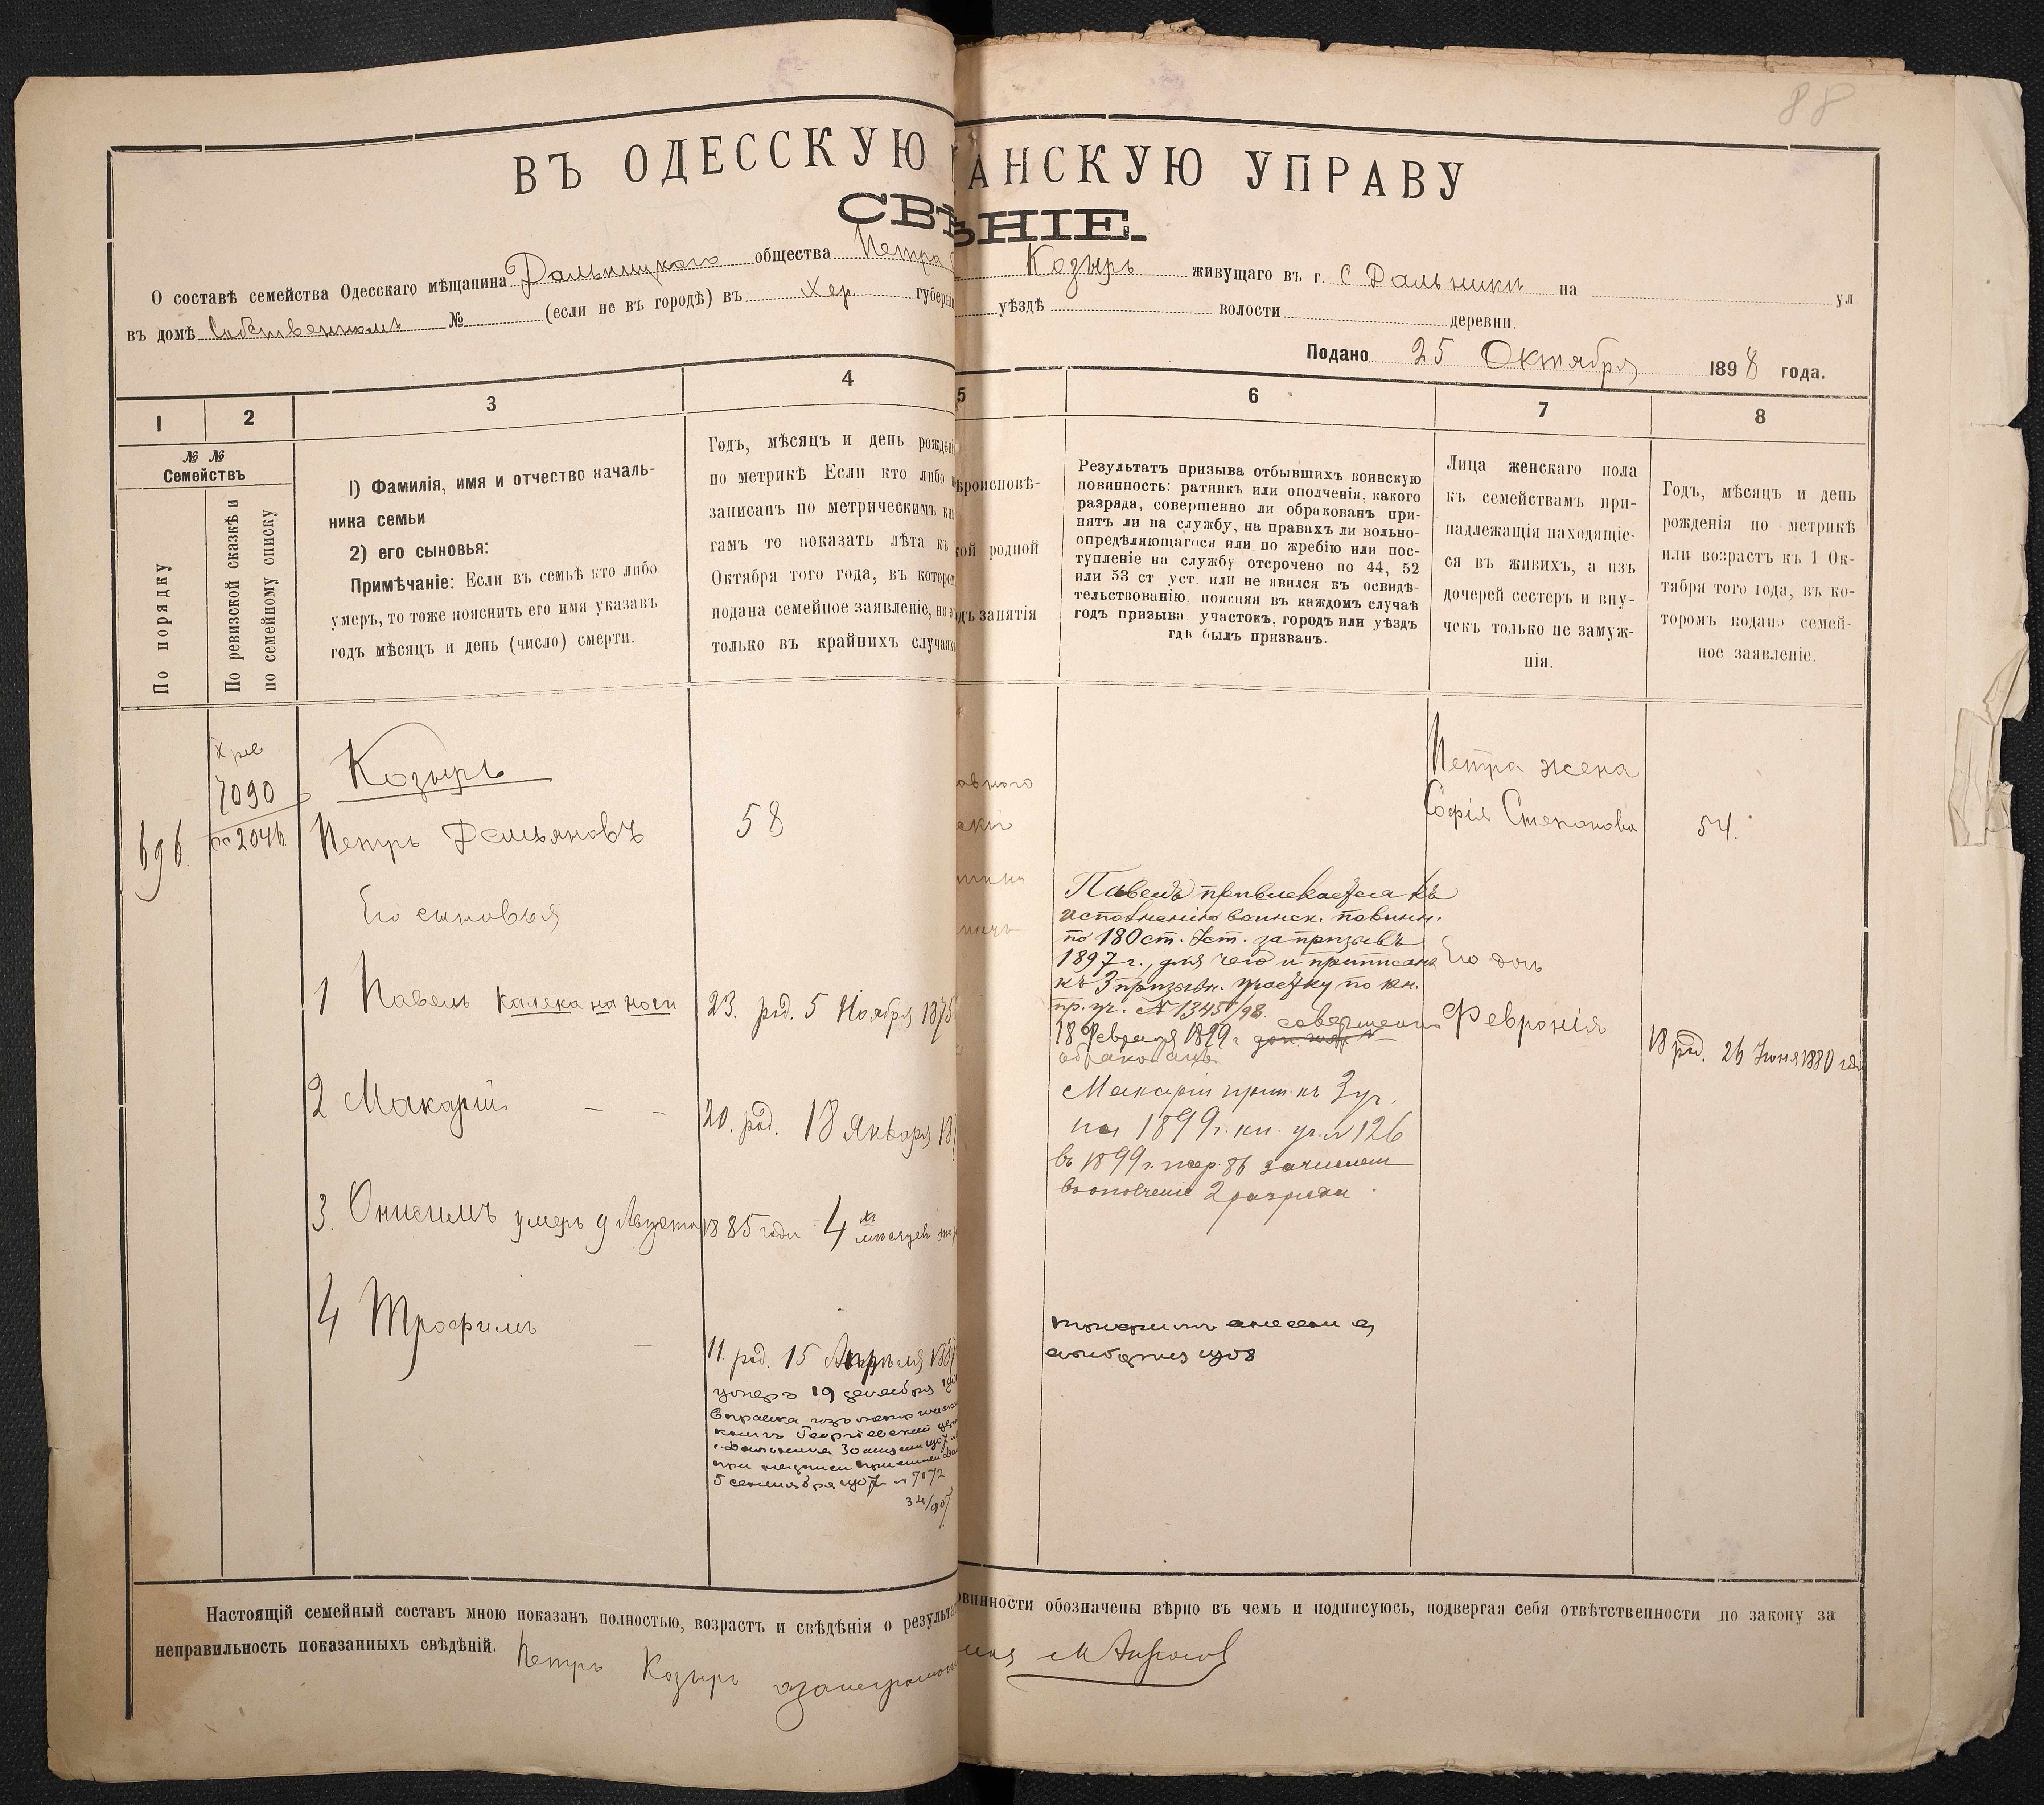 88
ВЪ ОДЕССКУЮ АНСКУЮ УПРАВУ
СВѢ ѢНІЕ.
О составѣ семейства Одесскаго мѣщанина Дальницкаго общества Петра Козырь живущаго въ г. с Дальники на ул
въ домѣ Собственномъ № (если не въ городѣ) въ Хер. губерні уѣздѣ волости деревни.
Подано 25 Октября 1898 года.
1 2 3 4 5 6 7 8
№ № Семействъ
По порядку
По ревизской сказкѣ и по семейному списку
1) Фамилія, имя и отчество началь-
ника семьи
2) его сыновья:
Примѣчаніе: Если въ семьѣ кто либо
умеръ, то тоже пояснить его имя указавъ
годъ мѣсяцъ и день (число) смерти.
Годъ, мѣсяцъ и день рождені
по метрикѣ Если кто либо
записанъ по метрическимъ кни
гамъ то показать лѣта къ
Октября того года, въ которо
подана семейное заявленіе, но
только въ крайнихъ случаях
ѣроисповѣ-
кой родной
дъ занятія
Результатъ призыва отбывшихъ воинскую
повинность: ратникъ или ополченія, какого
разряда, совершенно ли обракованъ при-
нятъ ли на службу, на правахъ ли вольно-
опредѣляющагося или по жребію или пос-
тупленіе на службу отсрочено по 44, 52
или 53 ст уст. или не явился къ освидѣ-
тельствованію, поясняя въ каждомъ случаѣ
годъ призыва, участокъ, городъ или уѣздъ
гдѣ былъ призванъ.
Лица женскаго пола
къ семействамъ при-
надлежащія находящіе-
ся въ живихъ, а изъ
дочерей сестеръ и вну-
чекъ только не замуж-
нія.
Годъ, мѣсяцъ и день
рожденія по метрикѣ
или возрастъ къ 1 Ок-
тября того года, въ ко-
торомъ подано семей-
ное заявленіе.
696.
7090
2046
Козырь
Петръ Демьяновъ 58
Его сыновья
1 Павелъ калека на ноги 23. род. 5 Ноября 1875
2 Макарій – – 20. род. 18 Января 18
3. Онисимъ умеръ 9 Августа 1885 года 4 х мѣсяцев
4 Трофимъ – 11. род. 15 Апрѣля 188
умеръ 19 декабря
Справка изъ
книгъ Георгіевской
5 сентября 1907 № 7172
34/907
овного
Павелъ привлекается къ
исполненію воинск. повинн.
по 180 ст. Уст. за призывъ
1897 г., для чего и приписанъ
къ 3 призывн. участку по кн.
пр. уч. № 1345/98.
18 Февраля 1899 г. совершенно
обракованъ.
Макарій прип. къ 3 уч.
на 1899 г. кн. уч. № 126
въ 1899 г. жер. 86 зачислен
въ ополченіе 2 разряда.
Петра жена
Софія Степанова 54.
Его доч
Февронія 18 род. 26 Іюня 1880 год
Настоящій семейный составъ мною показанъ полностью, возрастъ и свѣдѣнія о результа овинности обозначены вѣрно въ чемъ и подписуюсь, подвергая себя отвѣтственности по закону за
неправильность показанныхъ свѣдѣній. Петръ Козырь